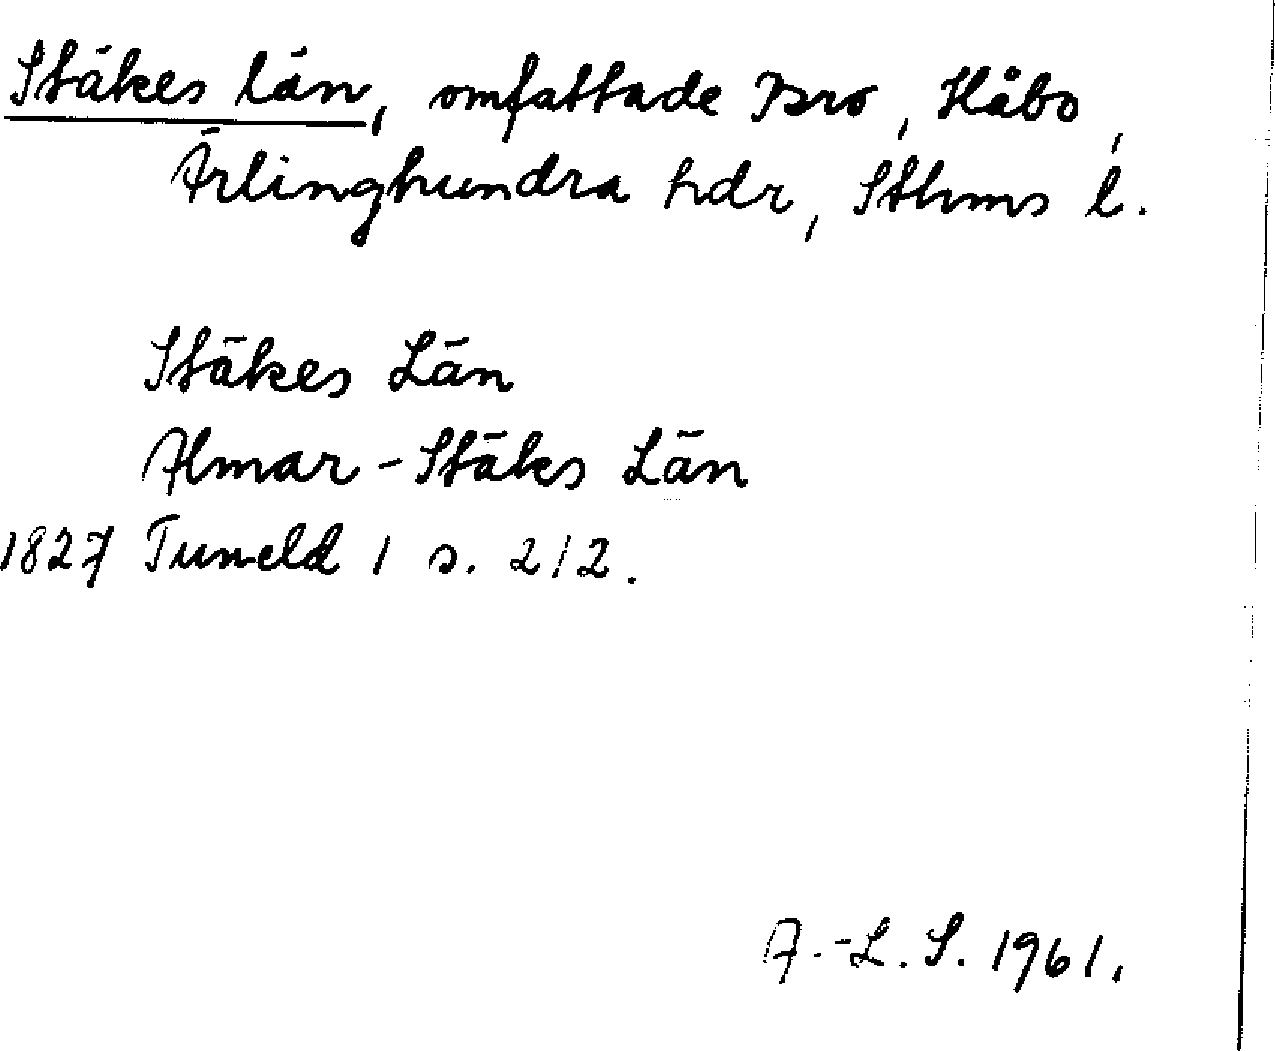 Stäkes län, omfattade Bro, Håbo,
Ärlinghundra hdr, Sthms l.
Stäkes Län
Almar-Stäks Län
1827 Tuneld 1 s. 212.
A.-L. S. 1961.